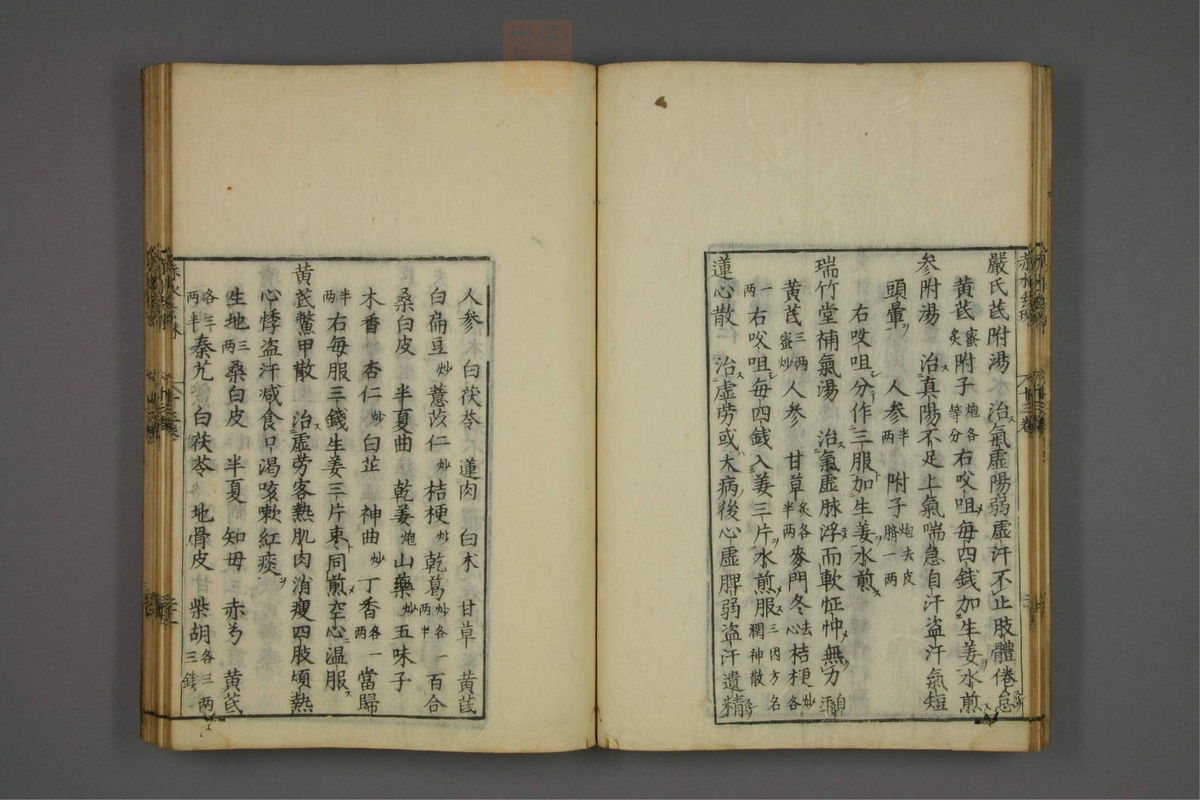 嚴氏芪附湯 治氣虛陽弱虛汗不止肢體倦怠
黄芪蜜炙附子炮各等分右㕮咀每四錢加生姜水煎
参附湯 治真陽不足上氣喘急自汗盗汗氣短
頭暈 人参半两 附子炮去皮臍一两
右㕮咀分作三服加生姜水煎
瑞竹堂補氣湯 治氣虛脉浮而軟怔忡無力
黄芪三两蜜炒人参 甘草炙各半两麥門冬去心桔梗炒各
一两右㕮咀每四錢入姜三片水煎服
蓮心散 治虛劳或大病後心虛脾弱盗汗遺精
人参 白茯苓 蓮肉 白术 甘草 黄芪
白扁豆炒薏苡仁炒桔梗炒乾葛炒各一两半百合
桑白皮 半夏曲 乾姜炮山藥炒五味子
木香 杏仁炒白芷 神曲炒丁香各一两當歸
半两右每服三錢生姜三片枣同煎空心温服
黄芪鱉甲散 治虛劳客熱肌肉消瘦四肢煩熱
心悸盗汗减食口渴咳嗽紅痰
生地三两桑白皮 半夏 知母 赤芍 黄芪
各三两半秦艽 白茯苓 地骨皮 柴胡各三两三錢